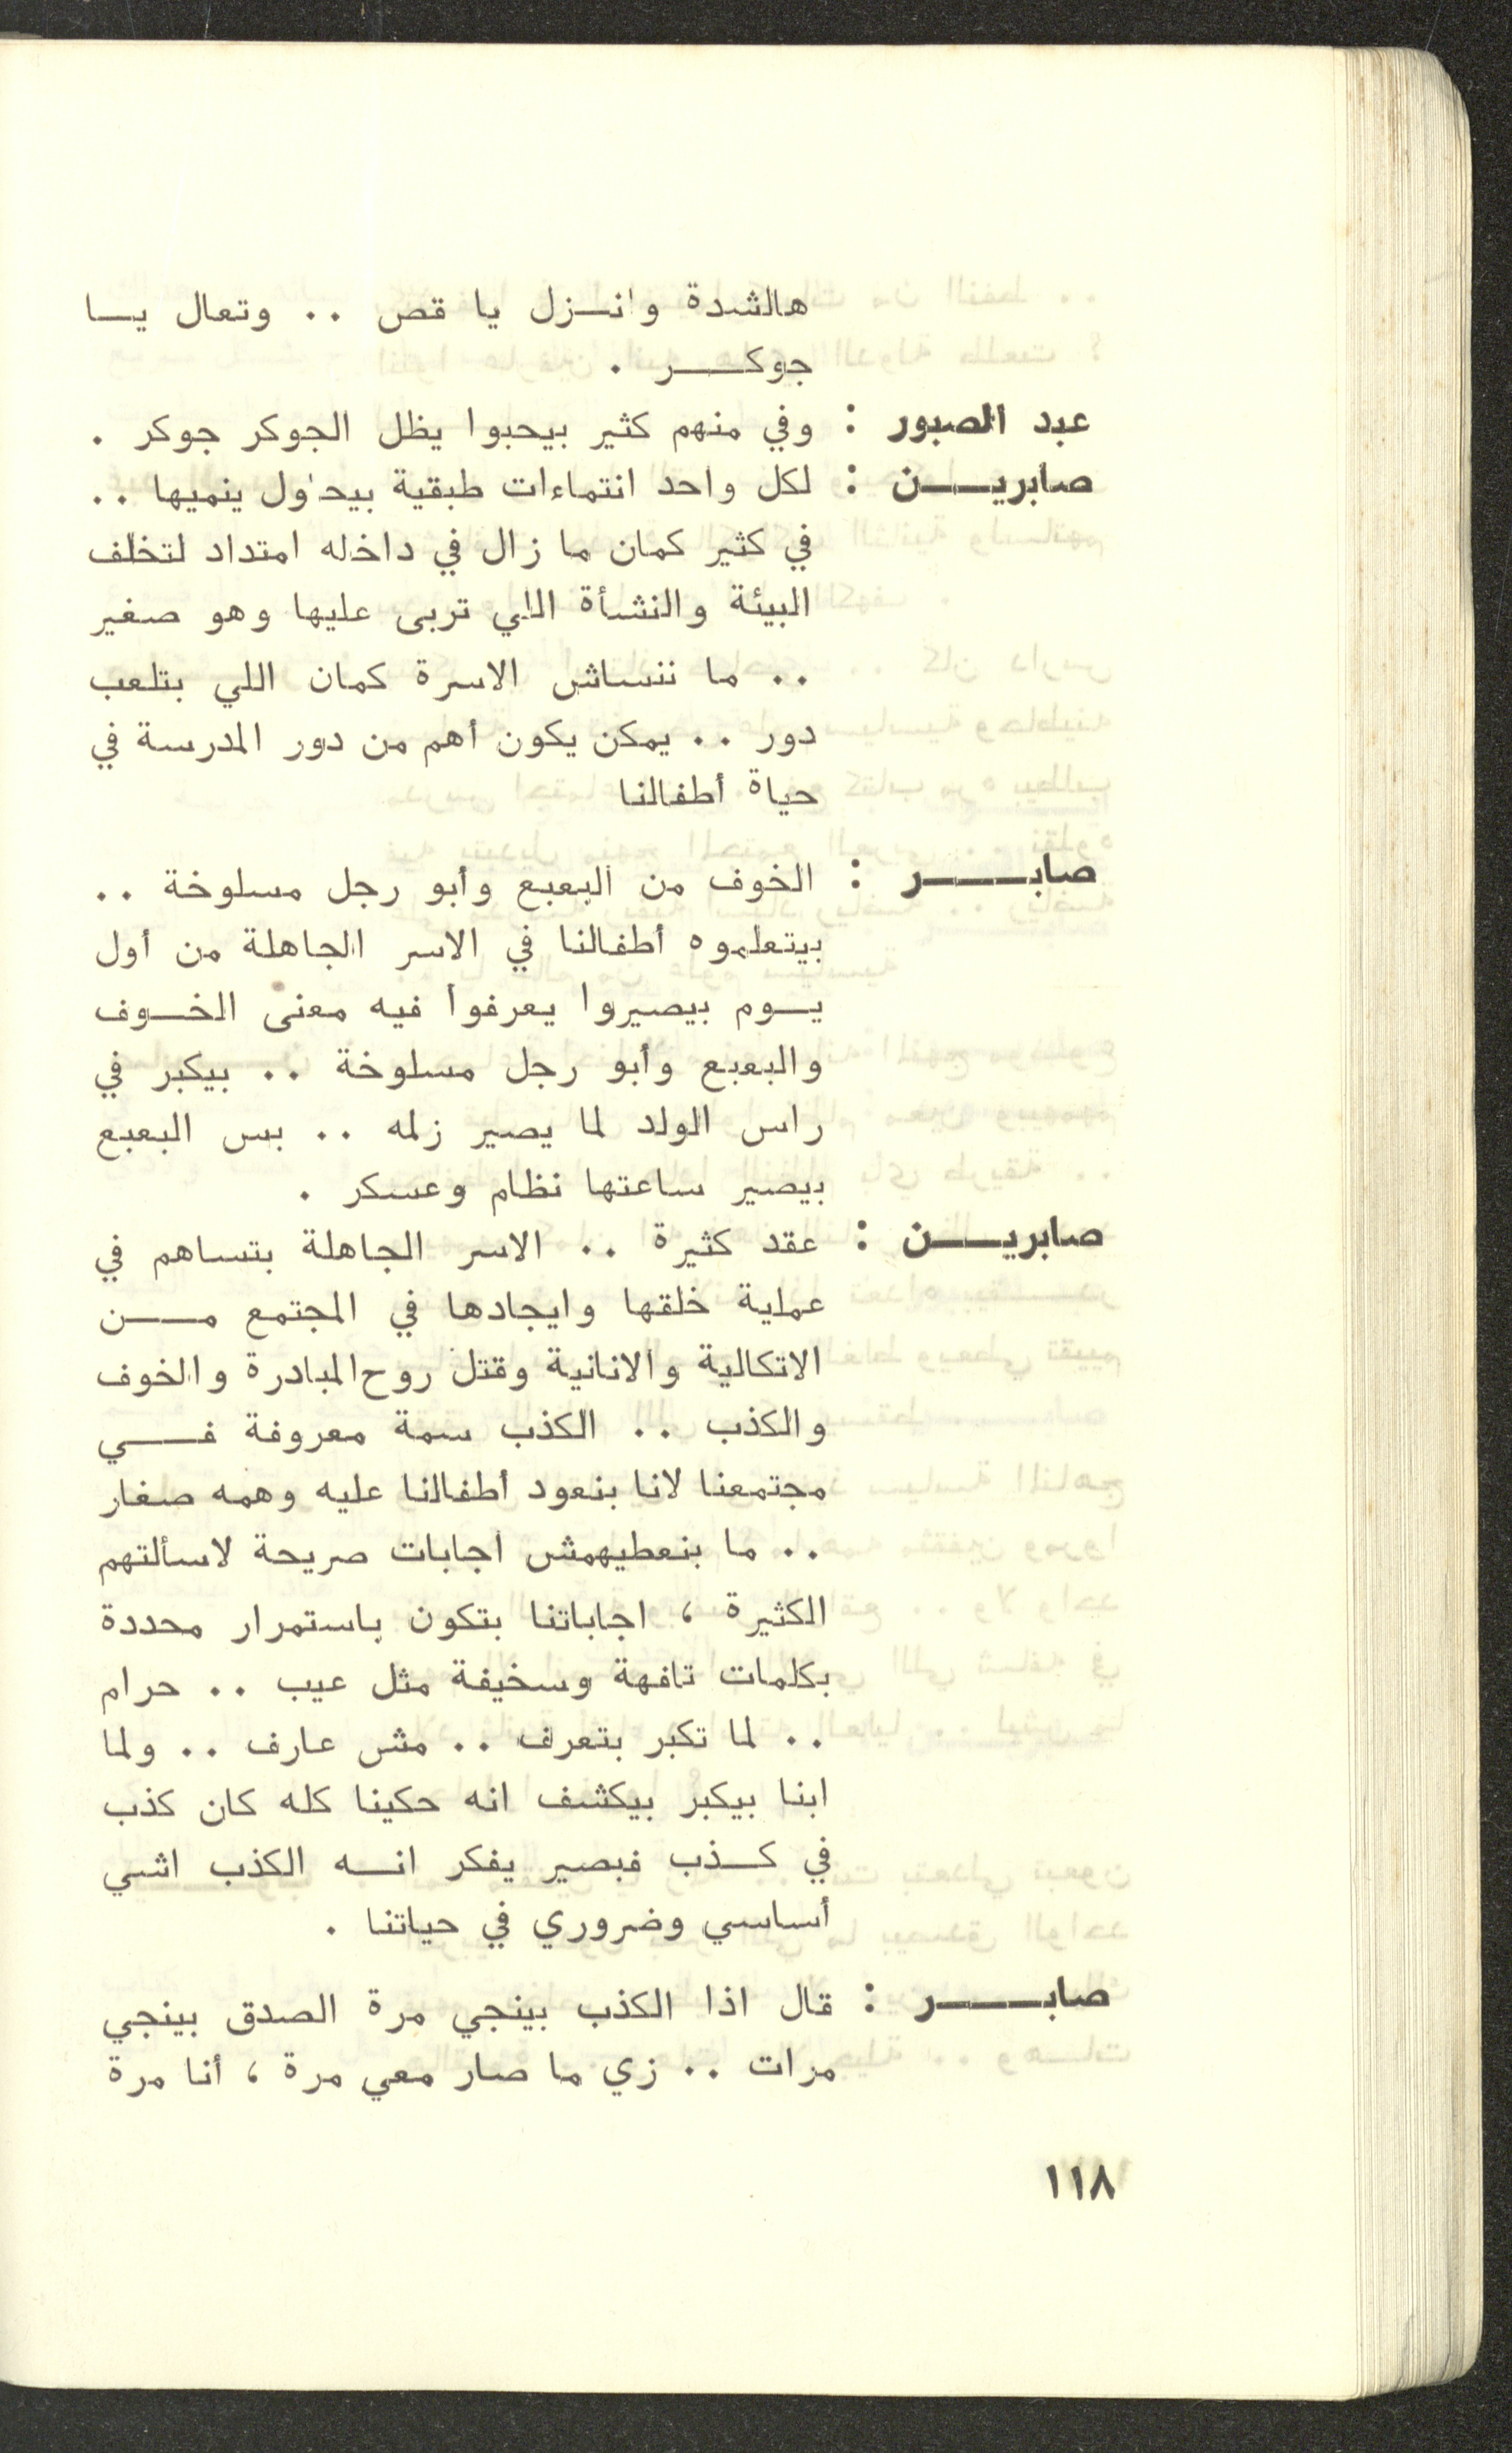 هالشدة وانزل يا قص .. وتعال يا
جوكر .
عبد الصبور : وفي منهم كثير بيحبوا يظل الجوكر جوكر .
صابرين : لكل واحد انتماءات طبقية بيحاول ينميها ..
في كثير كمان ما زال في داخله امتداد لتخلف
البيئة والنشأة اللي تربى عليها وهو صغير
.. ما ننساش الاسرة كمان اللي بتلعب
دور .. يمكن يكون أهم من دور المدرسة في
حياة أطفالنا
صابر : الخوف من البعبع وأبو رجل مسلوخة ..
بيتعلموه أطفالنا في الاسر الجاهلة من أول
يوم بيصيروا يعرفوا فيه معنى الخوف
والبعبع وأبو رجل مسلوخة .. بيكبر في
راس الولد لما يصير زلمه .. بس البعبع
بيصير ساعتها نظام وعسكر .
صابرين : عقد كثيرة .. الاسر الجاهلة بتساهم في
عملية خلقها وايجادها في المجتمع من
الاتكالية والانانية وقتل روح المبادرة والخوف
والكذب .. الكذب سمة معروفة في
مجتمعنا لانا بنعود أطفالنا عليه وهمه صغار
.. ما بنعطيهمش اجابات صريحة لاسألتهم
الكثيرة ، اجاباتنا بتكون باستمرار محددة
بكلمات تافهة وسخيفة مثل عيب .. حرام
.. لما تكبر بتعرف .. مش عارف .. ولما
ابنا بيكبر بيكشف انه حكينا كله كان كذب
في كذب فبصير يفكر انه الكذب اشي
أساسي وضروري في حياتنا .
صابر : قال اذا الكذب بينجي مرة الصدق بينجي
مرات .. زي ما صار معي مرة ، أنا مرة
١١٨